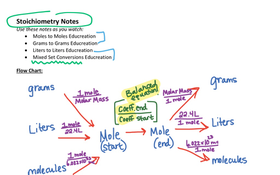 Stoichiometry Notes
Use these notes as you watch:
• Moles to Moles Educreation
• Grams to Grams Educreation
• Liters to Liters Educreation
• Mixed Set Conversions Educreation
Flow Chart:
grams
1 mole
Molar Mass
Balanced
equation
Coeff. end
Coeff. start
Molar Mass
1 mole
grams
Liters
1 mole
22.4L
Mole
(start)
Mole
(end)
22.4L
1 mole
Liters
molecules
1 mole
6.022x10²³
6.022x10²³
1 mole
molecules